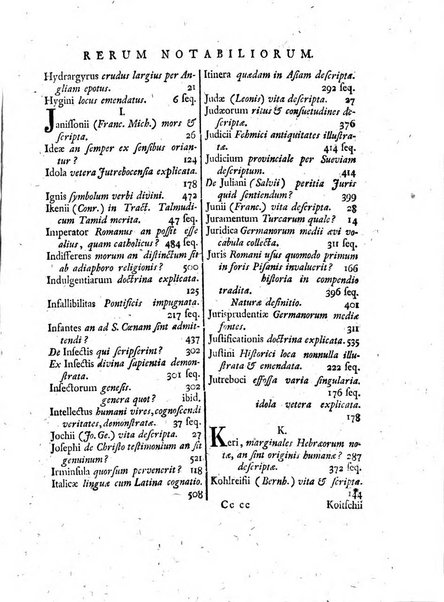 RERUM NOTABILIORUM.
Hydrargyrus crudus largius per An-
gliam epotus. 21
Hygini locus emendatus. 6 seq.
I.
Janissonii (Franc. Mich.) mors &
scripta. 26
Ideæ an semper ex sensibus orian-
tur? 124
Idola vetera Jutrebocensia explicata.
178
Ignis symbolum verbi divini. 472
Ikenii (Conr.) in Tract. Talmudi-
cum Tamid merita. 47 seq.
Imperator Romanus an possit esse
alius, quam catholicus? 484 seq.
Indifferens morum an distinctum sit
ab adiaphoro religionis? 500
Indulgentiarum doctrina explicata.
125
Infallibilitas Pontificis impugnata.
217 seq.
Infantes an ad S. Cœnam sint admit-
tendi? 437
De Insectis qui scripserint? 302
Ex Insectis divina sapientia demon-
strata. 301 seq.
Insectorum genesis. 302
genera quot? ibid.
Intellectus humani vires, cognoscendi
veritates, demonstratæ. 37 seq.
Jochii (Jo. Ge.) vita descripta. 27
Josephi de Christo testimonium an sit
genuinum? 521
Irminsula quorsum pervenerit? 118
Italicæ linguæ cum Latina cognatio.
508
Itinera quædam in Asiam descripta.
292 seq.
Judæ (Leonis) vita descripta. 27
Judæorum ritus & consuetudines de-
scriptæ. 376
Judicii Fehmici antiquitates illustra-
tæ. 414 seq.
Judicium provinciale per Sueviam
descriptum. 414 seq.
De Juliani (Salvii) peritia Juris
quid sentiendum? 399
Junii (Franc.) vita descripta. 28
Juramentum Turcarum quale? 14
Juridica Germanorum medii ævi vo-
cabula collecta. 311 seq.
Juris Romani usus quomodo primum
in foris Pisanis invaluerit? 166
historia in compendio
tradita. 396 seq.
Naturæ definitio. 401
Jurisprudentiæ Germanorum mediæ
fontes. 311
Justificationis doctrina explicata. 535
Justini Historici loca nonnulla illu-
strata & emendata. 5 seq.
Jutreboci effossa varia singularia.
176 seq.
idola vetera explicata.
178
K.
Keri, marginales Hebræorum no-
tæ, an sint originis humanæ? 287
descriptæ. 372 seq.
Kohlreifii (Bernh.) vita descripta.
144
Cc cc Koitschii